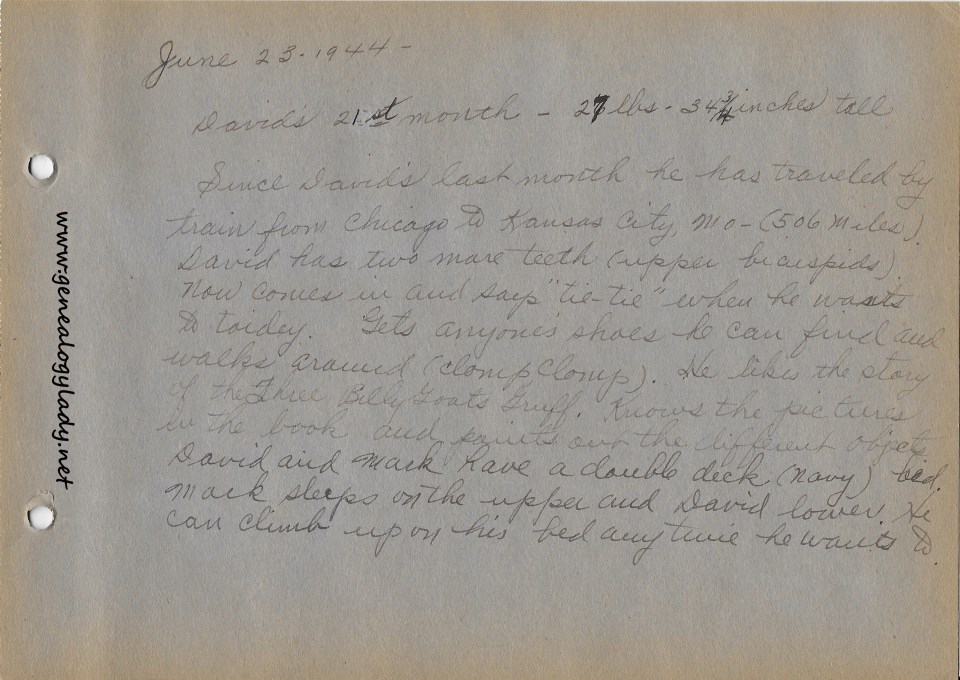 June 23 - 1944 -
David's 21st month - 27 lbs - 34 3/4 inches tall
Since David's last month he has traveled by
train from Chicago to Kansas City, Mo - (506 Miles).
David has two more teeth (upper bicuspids).
Now comes in and says "tie-tie" when he wants
to toidey. Gets anyone's shoes he can find and
walks around (clomp clomp). He likes the story
of the Three Billy Goats Gruff. Knows the pictures
in the book and points out the different objects.
David and Mark have a double deck (navy) bed.
Mark sleeps on the upper and David lower. He
can climb up on his bed any time he wants to
www.genealogylady.net